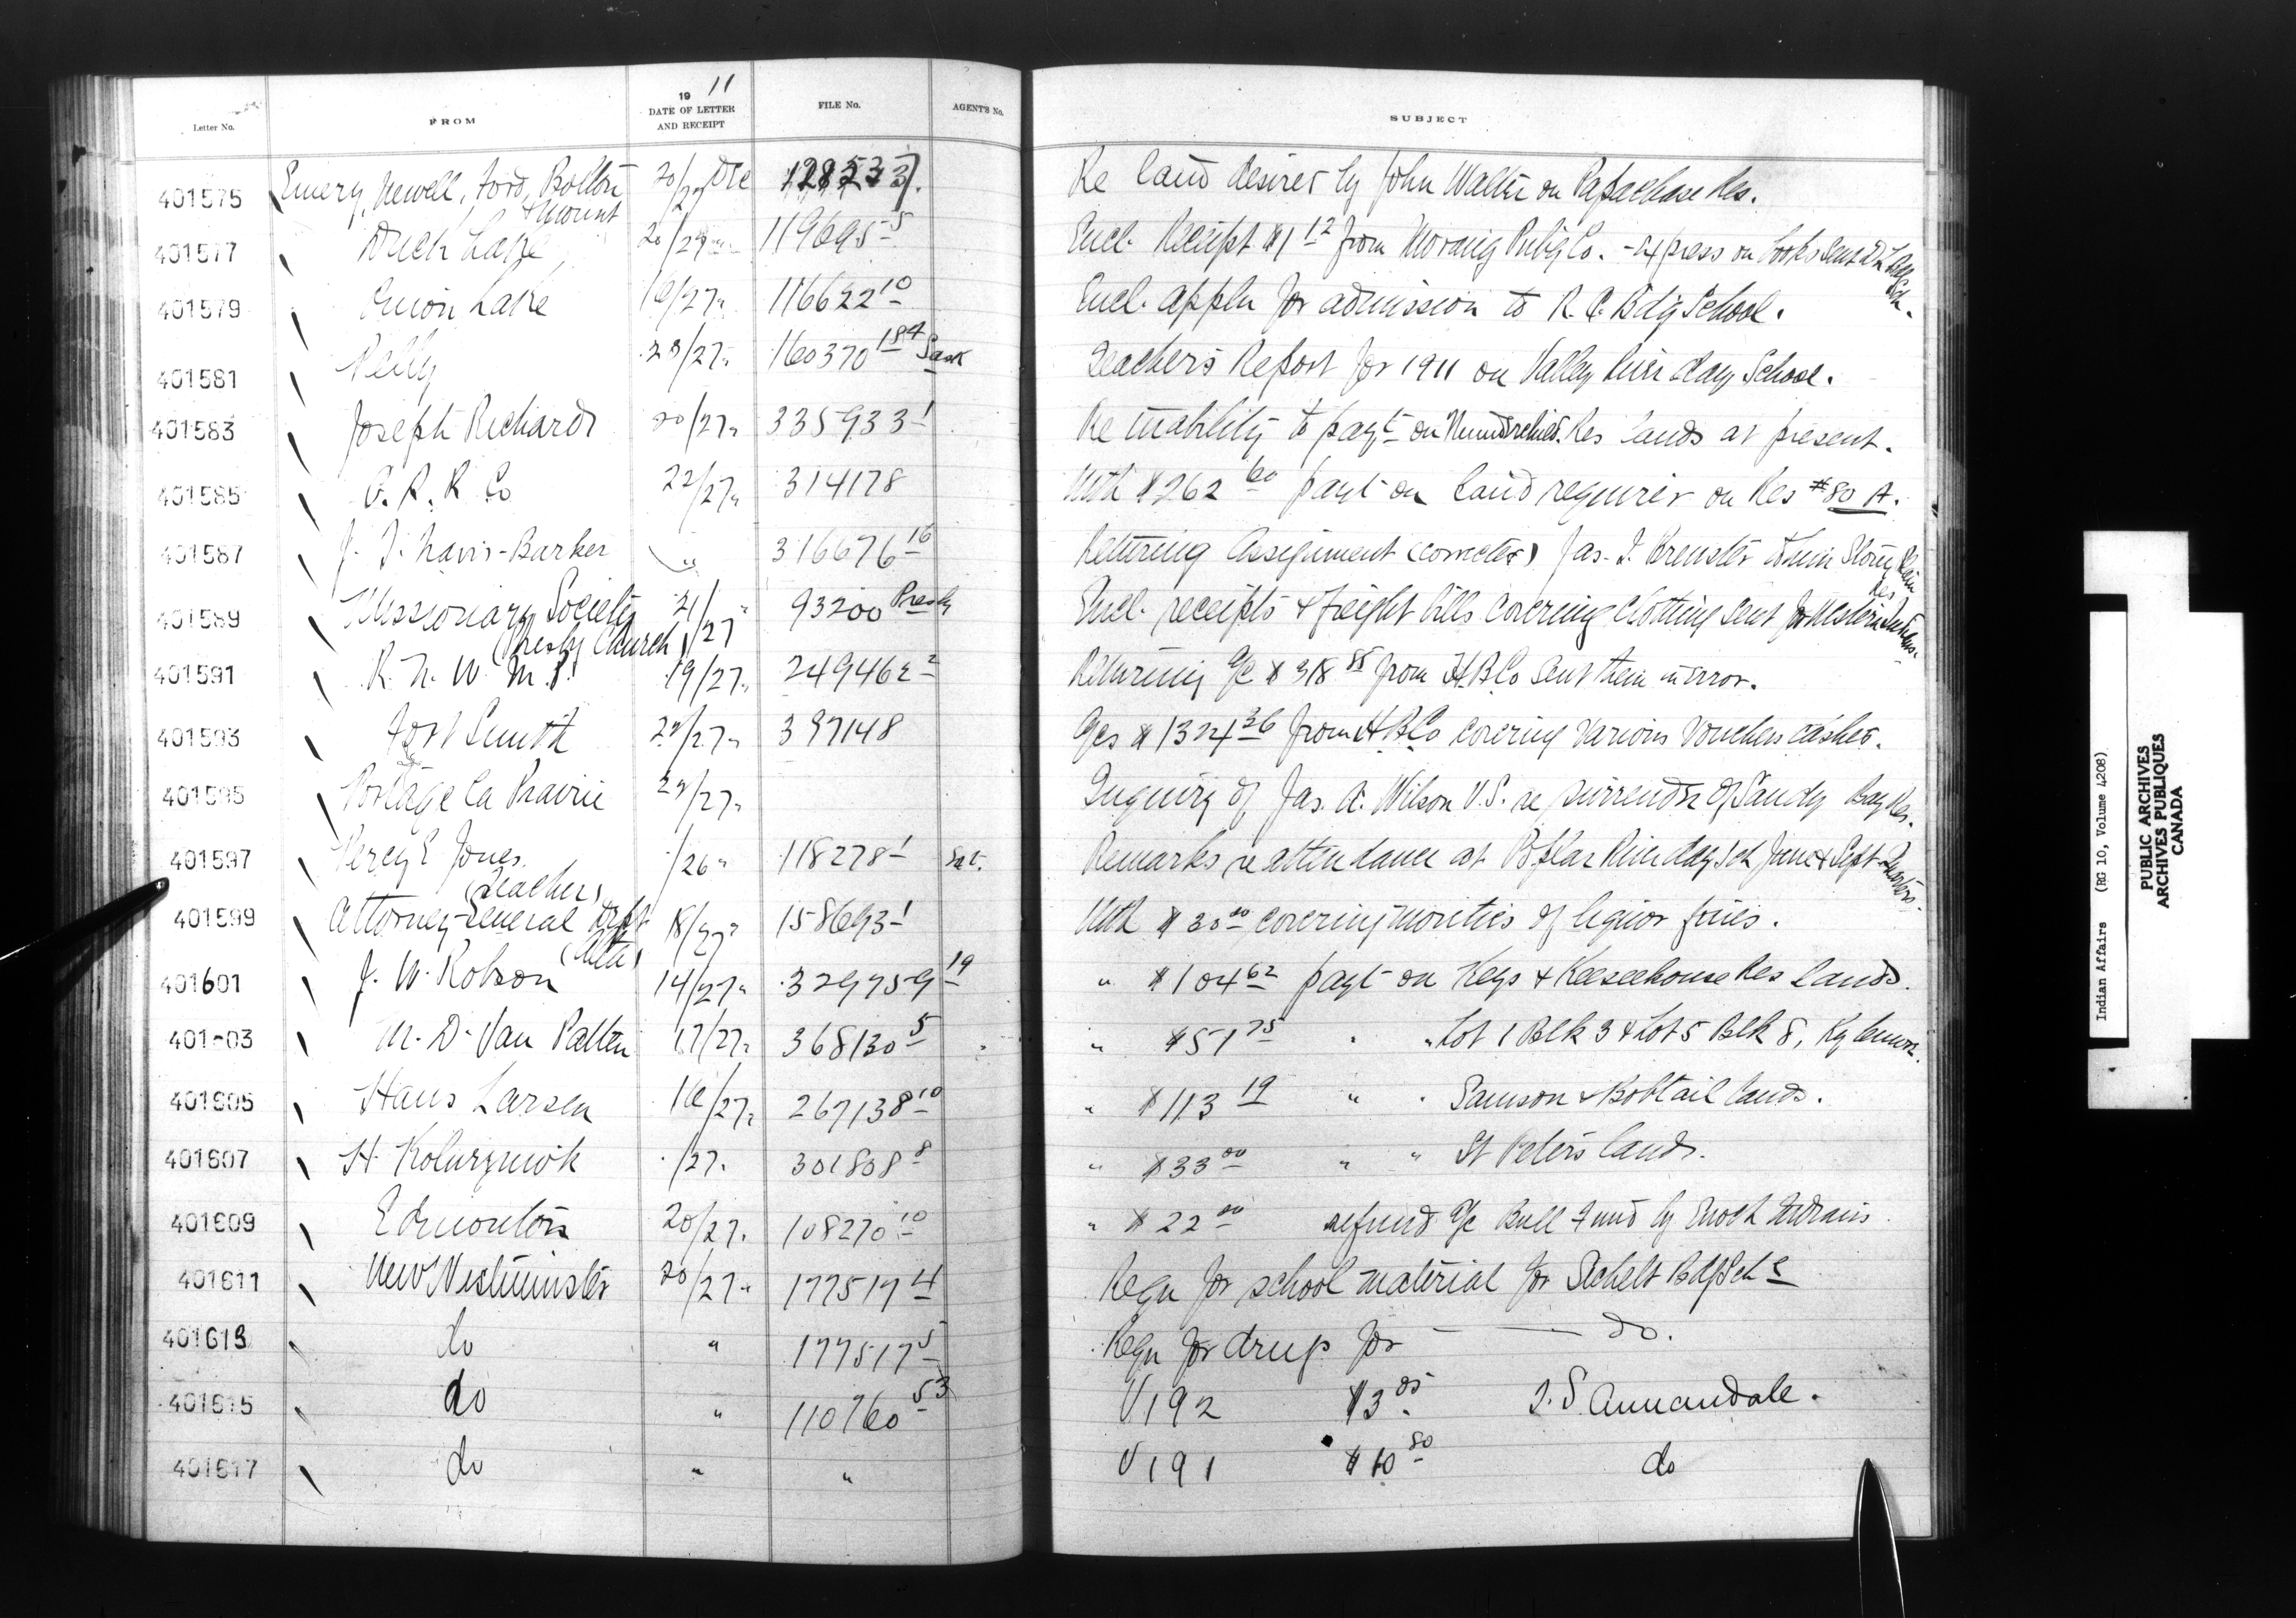 Letter No. FROM 19 11 DATE OF LETTER AND RECEIPT FILE No. AGENT'S No. SUBJECT
401575 Emery, Newell, Ford, Bolton & Mount 20/27 Dec Re land desired by John Walter on Papachase Res.
401577 Duck Lake 20/27 119695-5 Encl. Receipt $1 12 from Morang Pub'g Co. - Express on books sent D. Lake Sch.
401579 Onion Lake 16/27 " 116622 10 Encl. appln for admission to R. C. Bd'g School.
401581 Pelly 23/27 " 160370 184 Sask Teacher's Report for 1911 on Valley River day School.
401583 Joseph Richards 20/27 " 335933 1 Re inability to payt on Res lands at present.
401585 C. P. R. Co 22/27 " 314178 With $262 60 payt on land required on Res #80 A.
401587 J. T. Navis-Barker " 316676 16 Returning Assignment (corrected) Jas. I. Brewster to him Stony Plain Res
401589 Missionary Society (Presby Church) 21/27 " 93200 Presby Encl. receipts & freight bills covering Clothing sent for Western Indians.
401591 R. N. W. M. P. 19/27 " 249462 2 Returning a/c $318 85 from H.B.Co sent them in error.
401593 Fort Smith 22/27 " 397148 a/cs $1324 36 from H.B.Co covering various Vouchers cashed.
401595 Portage la Prairie 22/27 " Inquiry of Jas. A. Wilson V.S. re surrender of Sandy Bay Res.
401597 Percy E Jones (Teacher) /26 " 118278 1 Remarks re attendance at Poplar River day sch June & Sept Quarters.
401599 Attorney-General Dept (Alta) 18/27 " 158693 1 With $30 00 covering moities of liquor fines.
401601 J. W. Robson 14/27 " 329759 19 " $104 62 payt on Keys & Keeseekouse Res lands.
401603 M. D. Van Patten 17/27 " 368130 5 " $51 75 " " Lot 1 Blk 3 & Lot 5 Blk 8, Kylemore.
401605 Hans Larsen 16/27 " 267138 10 " $113 19 " " Samson & Bobtail lands.
401607 /27 " 301808 8 " $33 00 " " St Peters lands.
401609 Edmonton 20/27 " 108270 10 " $22 00 refund a/c Bull Fund by Enoch Indians.
401611 New Westminster 20/27 " 177517 4 Reqn for school material for Sechelt Bd'g Sch S
401613 do " 177517 5 Reqn for drugs for — — do.
401615 do " 110760 53 V192 $3 05 T. S. Annandale.
401617 do " " V191 $10 80 do
Indian Affairs (RG 10, Volume 4208)
PUBLIC ARCHIVES
ARCHIVES PUBLIQUES
CANADA